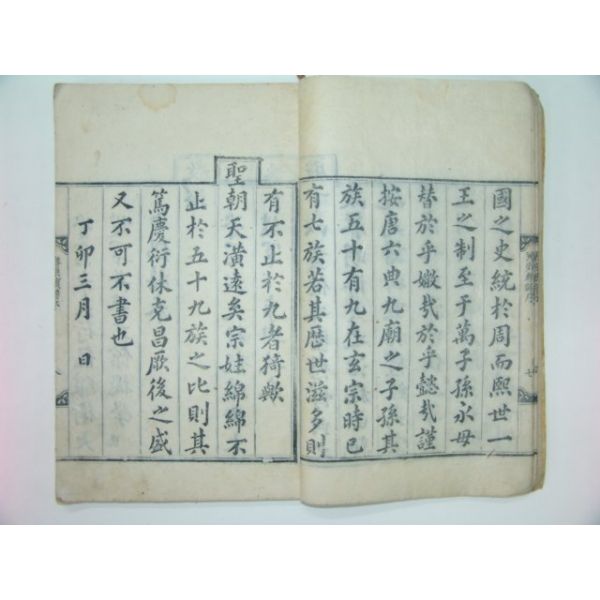 國之史統於周而熙世一
王之制至于萬子孫永毋
替於乎嫩㢤於乎懿㢤謹
按唐六典九廟之子孫其
族五十有九在玄宗時已
有七族若其歷世滋多則
有不止於九者猗歟
聖朝天潢遠矣宗姓綿綿不
止於五十九族之比則其
篤慶衍休克昌厥後之盛
又不可不書也
丁卯三月 日